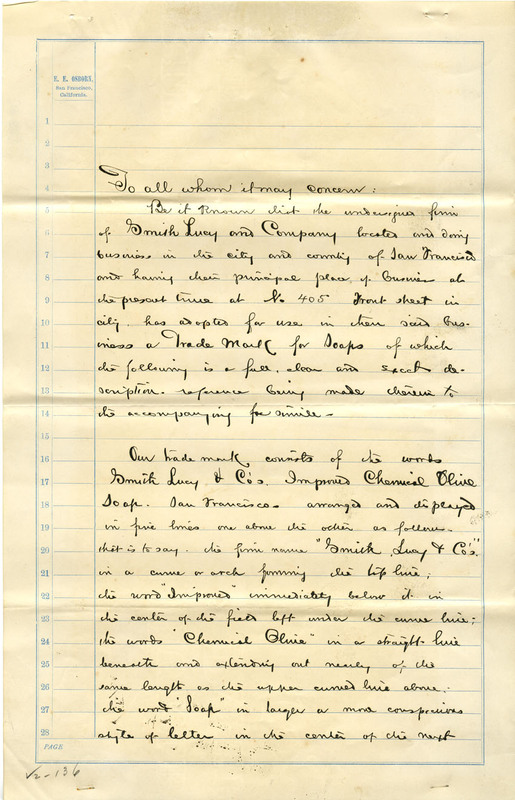 E. E. OSBORN,
San Francisco,
California.
1
2
3
4 To all whom it may concern:
5 Be it known that the undersigned firm
6 of Smith Lucy and Company located and doing
7 business in the city and county of San Francisco
8 and having their principal place of business at
9 the present time at No 405 Front street in
10 city. has adopted for use in their said bus-
11 iness a Trade Mark for Soaps of which
12 the following is a full, clear and exact de-
13 scription. reference being made therein to
14 the accompanying fac simile -
15
16 Our trade mark consists of the words
17 Smith Lucy & Co's. Improved Chemical Olive
18 Soap. San Francisco - arranged and displayed
19 in five lines one above the other as follows -
20 that is to say. the firm name "Smith, Lucy & Co's."
21 in a curve or arch forming the top line;
22 the word "Improved" immediately below it in
23 the center of the field left under the curve line;
24 the words "Chemical Olive" in a straight line
25 beneath and extending out nearly of the
26 same length as the upper curved line above;
27 the word "Soap" in larger a more conspicuous
28 style of letter in the center of the next
PAGE
V2-136